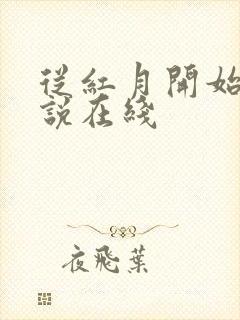 從紅月開始
說在綫
夜飛葉